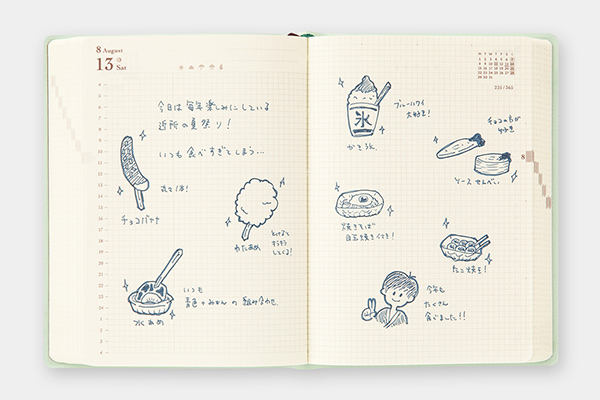 8 August
13 Sat
今日は毎年楽しみにしている
近所の夏祭り!
いつも食べすぎてしまう…
チョコバナナ
わたあめ
いつも
青色+みかんの組み合わせ
水あめ
225/365
ブルーハワイ
大好き!
氷
かき氷
ソースせんべい
8
焼きそば
目玉焼きつき!
たこ焼き!
今年も
たくさん
食べました!!